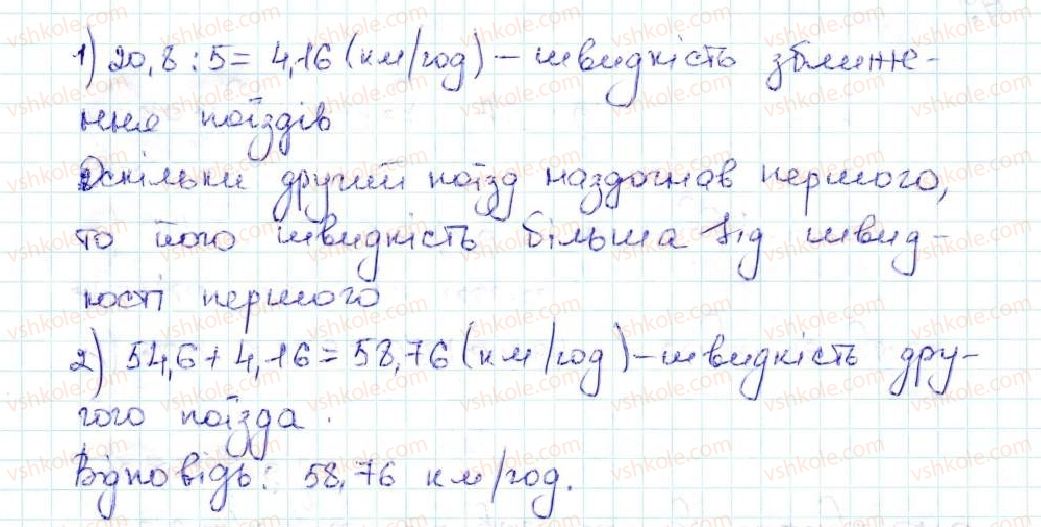 1) 20,8 : 5 = 4,16 (км/год) – швидкість зближе-
ння поїздів
Оскільки другий поїзд наздогнав першого,
то його швидкість більша від швид-
кості першого
2) 54,6 + 4,16 = 58,76 (км/год) – швидкість дру-
гого поїзда.
Відповідь: 58,76 км/год.